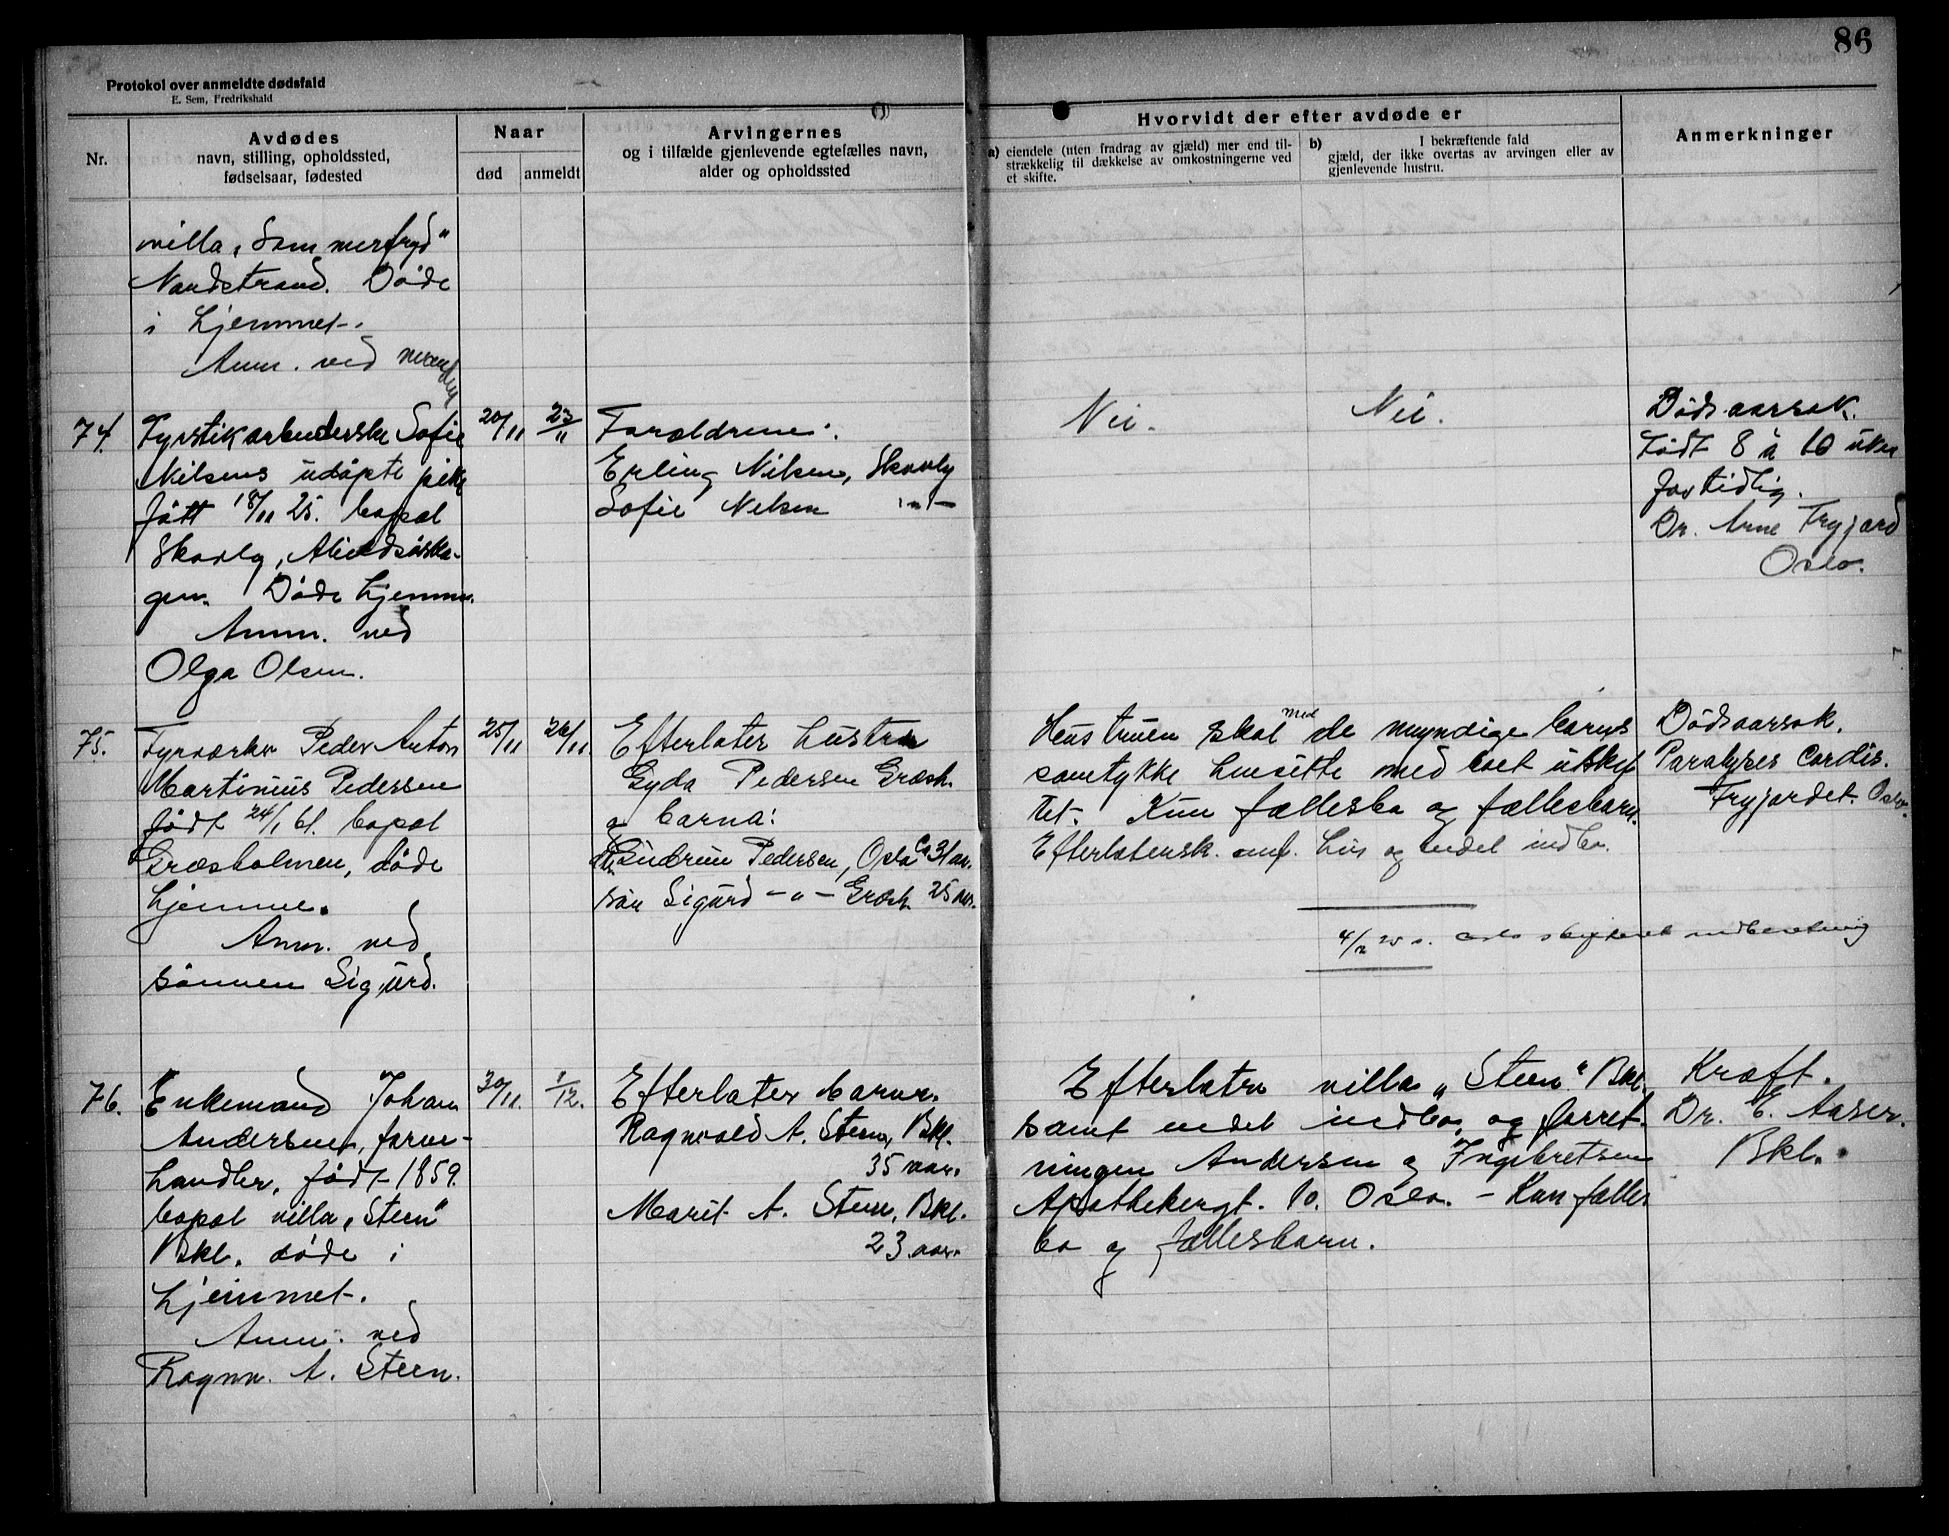 86
Protokol over anmeldte dødsfald
E. Sem, Fredrikshald
Nr.
Avdødes
navn, stilling, opholdssted,
fødselsaar, fødested
Naar
død
anmeldt
Arvingernes
og i tilfælde gjenlevende egtefælles navn,
alder og opholdssted
Hvorvidt der efter avdøde er
a) eiendele (uten fradrag av gjæld) mer end til-
strækkelig til dækkelse av omkostningerne ved
et skifte.
b) I bekræftende fald
gjæld, der ikke overtas av arvingen eller av
gjenlevende hustru.
Anmerkninger
villa „Sommerfryd"
Nordstrand. Døde
i hjemmet.
Anm. ved
74.
Fyrstikarbeiderske Sofie
Nilsens udøpte pike
født 18/11 25. bopæl
Skovly,
Døde hjemme.
Anm. ved
Olga Olsen.
20/11
23/11
Forældrene:
Erling Nilsen, Skovly
Sofie Nilsen -"-
Nei.
Nei.
Dødsaarsak.
Født 8 à 10 uker
fortidlig.
Dr. Arne Fryjord
Oslo.
75.
Fyrvorkter Peder Anton
Martinius Pedersen
født 24/1 61. bopæl
Græsholmen, døde
hjemme.
Anm. ved
sønnen Sigurd.
25/11
26/11.
Efterlater hustru
Gyda Pedersen Græsh.
og barna:
Gudrun Pedersen, Oslo Ca 31 aar.
søn Sigurd -"- Græsh. 25 aar.
Hustruen skal med de myndige barns
samtykke hensitte med boet uskif
tet. Kun fællesbo og fællesbarn.
Efterlatensk. omf. hus og endel indbo.
4/12 25 s. Oslo skifteret indberetning
Dødsaarsak.
Paralyses Cordis.
Fryjordet. Oslo.
76.
Enkemand Johan
Andersen, farve-
handler, født 1859.
bopæl villa „Steen"
Bkl. døde i
hjemmet.
Anm. ved
Ragnv. A. Steen.
30/11.
1/12.
Efterlater barn.
Ragnvald A. Steen, Bkl.
35 aar.
Marit A. Steen, Bkl.
23 aar.
Efterlatr villa „Steen" Bkl.
samt endel indbo, og forret-
ningen Andersen og Ingebretsen
Apothekergt. 10. Oslo. - Kun fælles
bo og fællesbarn.
Kræft.
Dr. E. Aaser.
Bkl.